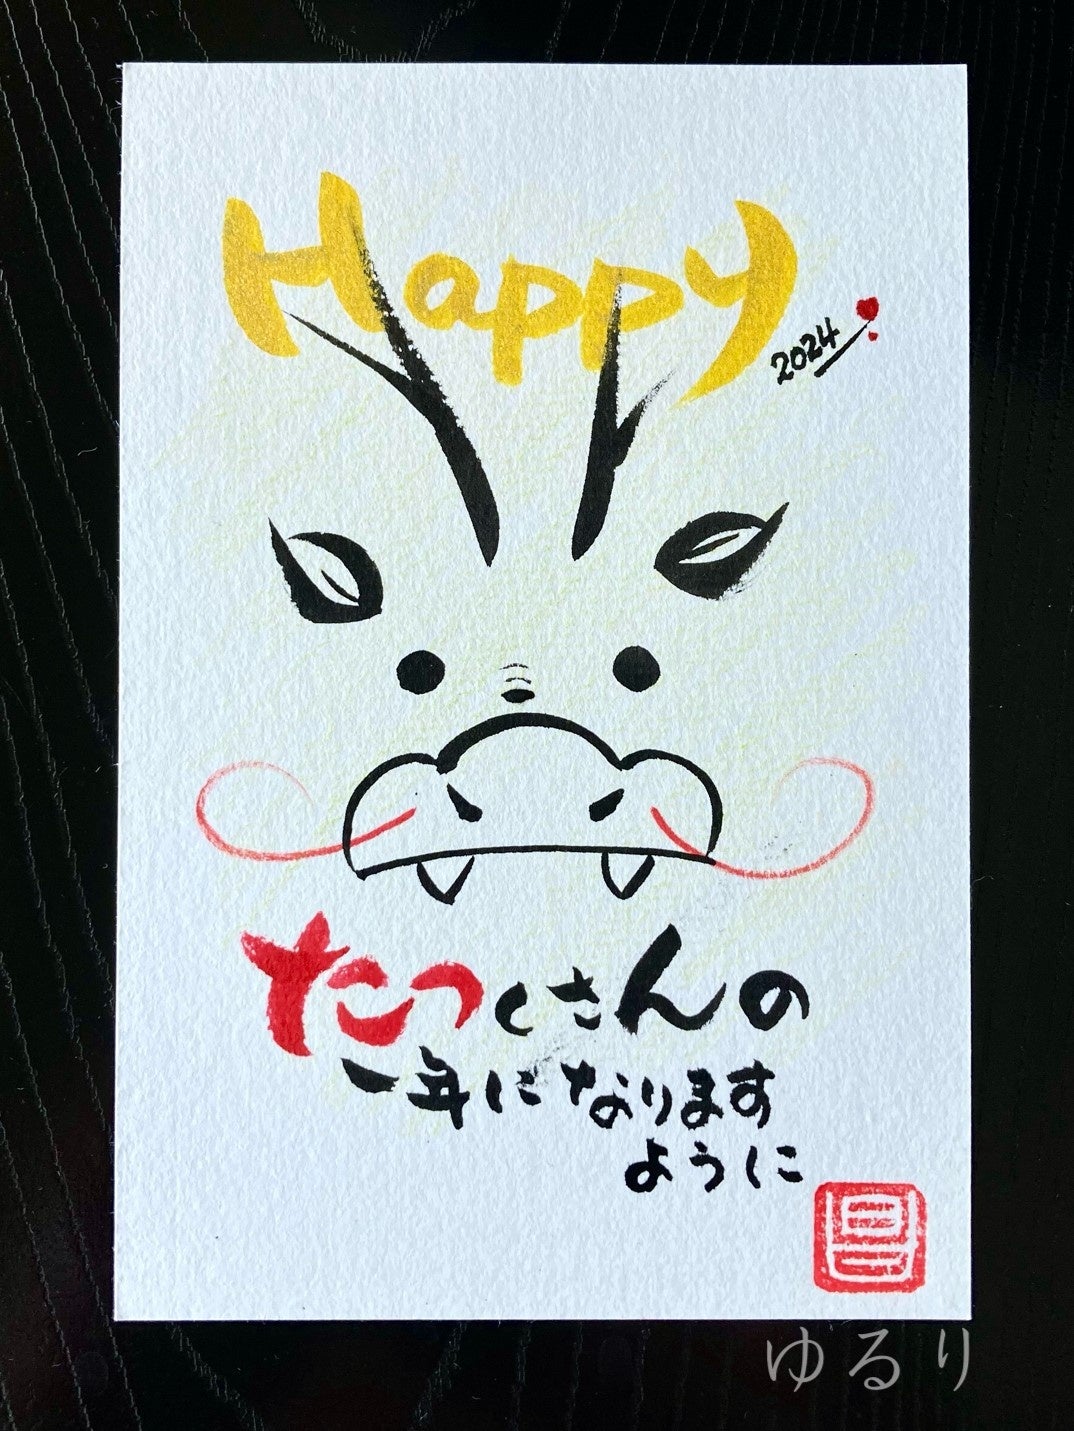 Happy
2024
たつくさんの
一年になります
ように
ゆるり